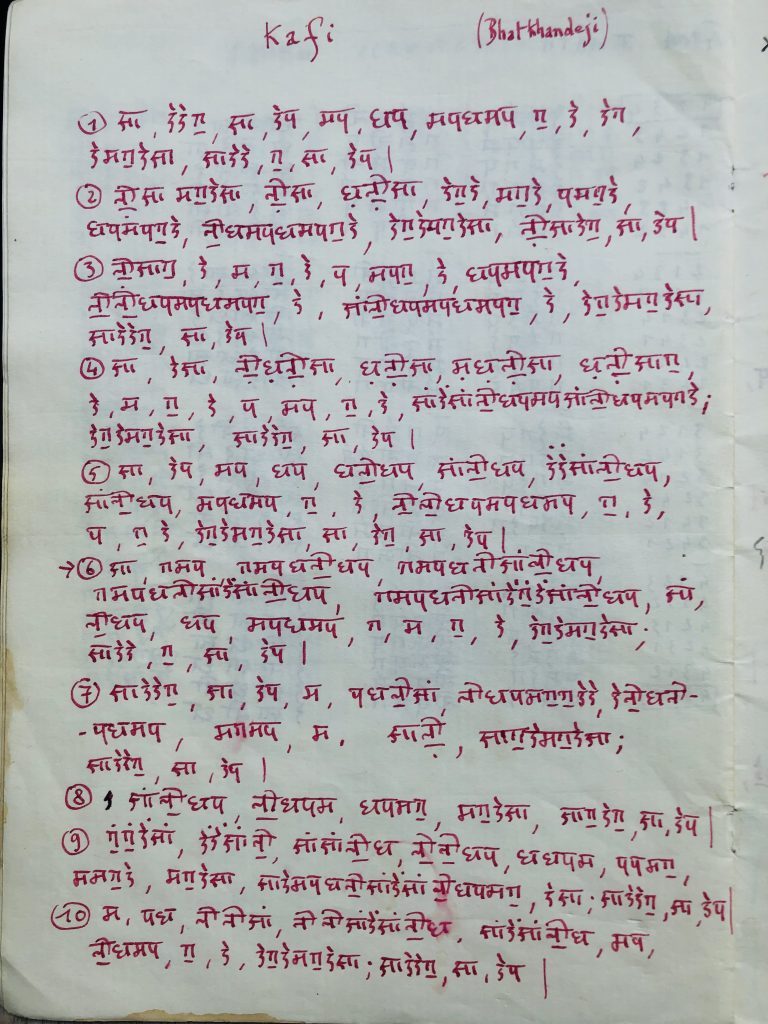 Kafi (Bhatkhandeji)
① सा, रेरेग॒, सा, रेप, मप, धप, मपधमप, ग॒, रे, रेग॒,
रेमग॒रेसा, सारेरे, ग॒, सा, रेप |
② नी॒सा मग॒रेसा, नी॒सा, ध़नी़॒सा, रेग॒रे, मग॒रे, पमग॒रे,
धपमपग॒रे, नी॒धमपधमपग॒रे, रेग॒रेमग॒रेसा, नी़॒सारेग॒, सा, रेप |
③ नी़॒साग॒, रे, म, ग॒, रे, प, मपग॒, रे, धपमपग॒रे,
नी॒नी॒धपमपधमपग॒, रे, सांनी॒धपमपधमपग॒, रे, रेग॒रेमग॒रेसा,
सारेरेग॒, सा, रेप |
④ सा, रेसा, नी़॒ध़नी़॒सा, ध़नी़॒सा, म़ध़नी़॒सा, ध़नी़॒साग॒,
रे, म, ग॒, रे, प, मप, ग॒, रे, सांरेंसांनी॒धपमपसांनी॒धपमपग॒रे;
रेग॒रेमग॒रेसा, सारेरेग॒, सा, रेप |
⑤ सा, रेप, मप, धप, धनी॒धप, सांनी॒धप, रेंरेंसांनी॒धप,
सांनी॒धप, मपधमप, ग॒, रे, नी॒नी॒धपमपधमप, ग॒, रे,
प, ग॒, रे, रेग॒रेमग॒रेसा, सा, रेग॒, सा, रेप |
→⑥ सा, गमप, गमपधनी॒धप, गमपधनीसांनी॒धप,
गमपधनीसांरेंसांनी॒धप, गमपधनीसांरेंगं॒रेंसांनी॒धप, सां,
नी॒धप, धप, मपधमप, ग, म, ग॒, रे, रेग॒रेमग॒रेसा;
सारेरे, ग॒, सा, रेप |
⑦ सारेरेग॒, सा, रेप, म, पधनी॒सां, नीधपमग॒ग॒रेरे, रेनी॒धनी-
-पधमप, मगमप, म, सानी़॒, साग॒रेमग॒रेसा;
सारेरेग॒, सा, रेप |
⑧ सांनी॒धप, नी॒धपम, धपमग॒, मग॒रेसा, साग॒रेग॒, सा, रेप |
⑨ गं॒गं॒रेंसां, रेंरेंसांनी॒, सांसांनी॒ध, नी॒नी॒धप, धधपम, पपमग॒,
ममग॒रे, मग॒रेसा, सारेमपधनी॒सांरेंसांनी॒धपमग॒, रेसा; सारेरेग॒, सा, रेप |
⑩ म, पध, नीनीसां, नीनीसांरेंसांनी॒ध, सांरेंसांनी॒ध, मप,
नी॒धमप, ग॒, रे, रेग॒रेमग॒रेसा; सारेरेग॒, सा, रेप |